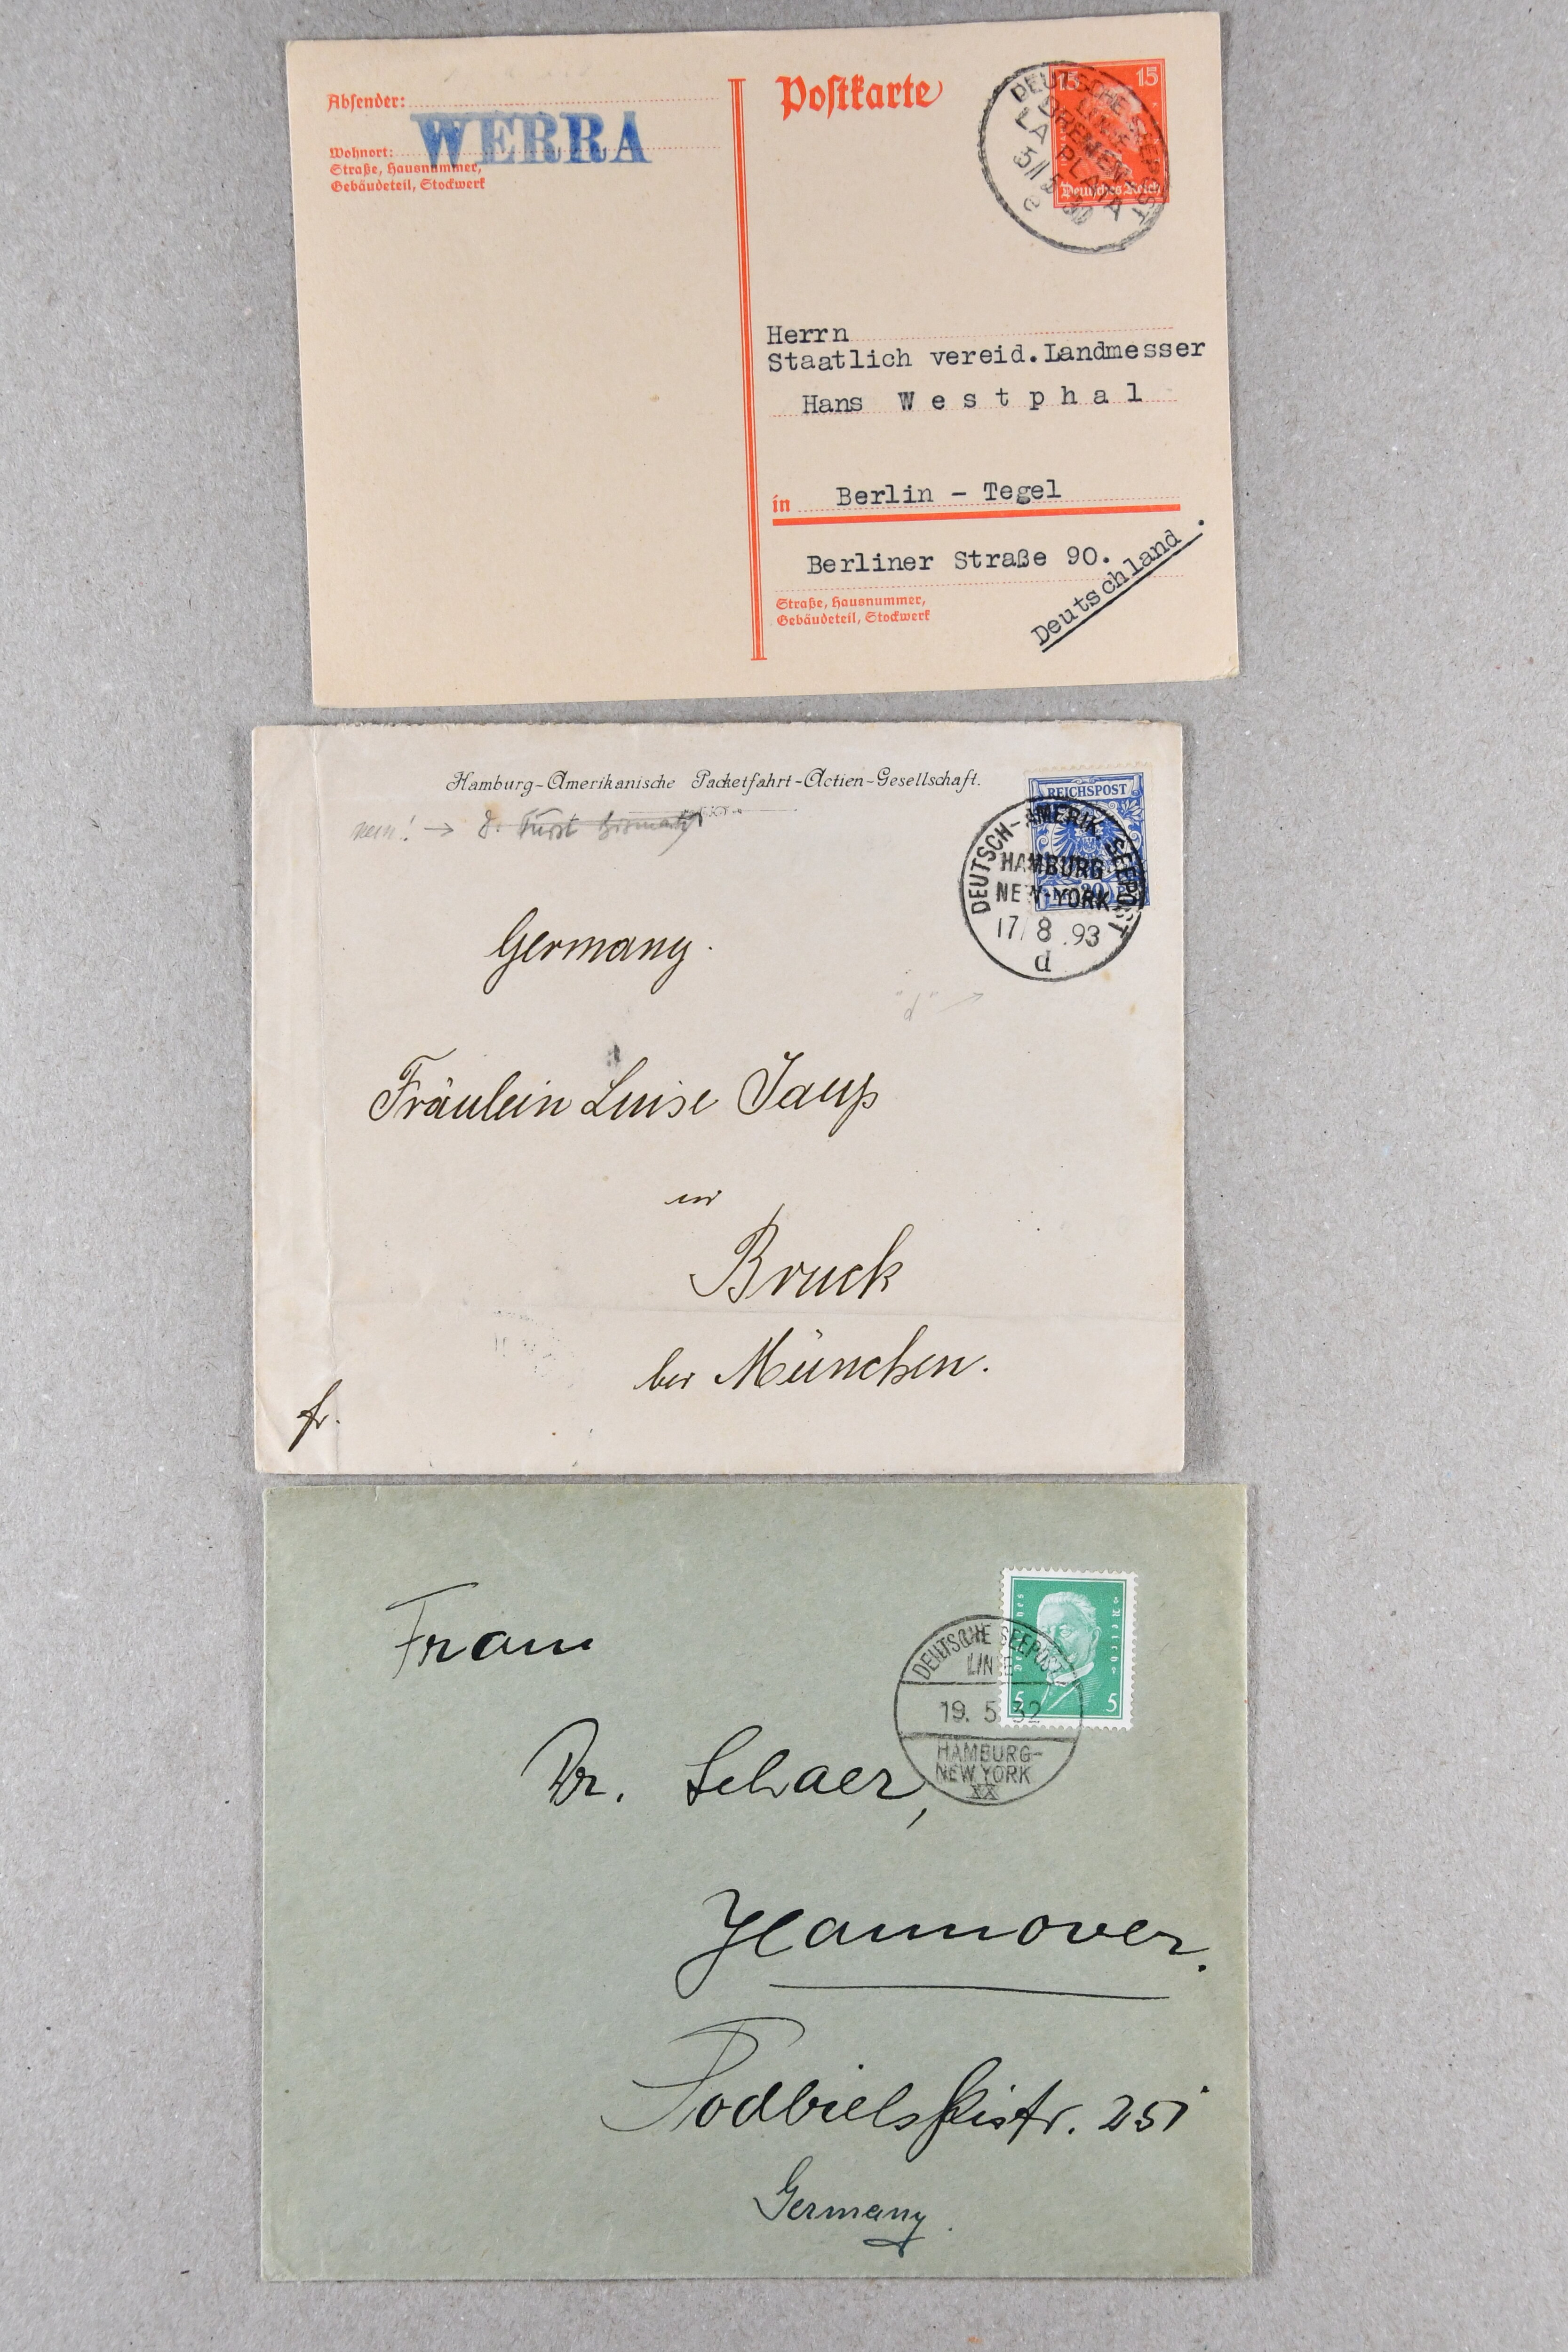 Absender:
WERRA
Wohnort:
Straße, Hausnummer,
Gebäudeteil, Stockwerk
Postkarte
15 15
Deutsches Reich
DEUTSCHE SEEPOST
LINIE
BREMEN
LA PLATA
e
Herrn
Staatlich vereid.Landmesser
Hans W e s t p h a l
in Berlin - Tegel
Berliner Straße 90.
Deutschland.
Straße, Hausnummer,
Gebäudeteil, Stockwerk
Hamburg-Amerikanische Packetfahrt-Actien-Gesellschaft.
nein! → D. Fürst Bismarck
REICHSPOST
20
DEUTSCH-AMERIK. SEEPOST
HAMBURG
NEW-YORK
17/8.93
d
"d" →
Germany.
Fräulein Luise Jaup
in
Bruck
bei München.
fr.
Deutsches Reich
5 5
DEUTSCHE SEEPOST
LINIE
19.5.32
HAMBURG-
NEW YORK
XX
Frau
Dr. Schaer,
Hannover.
Podbielskistr. 251
Germany.